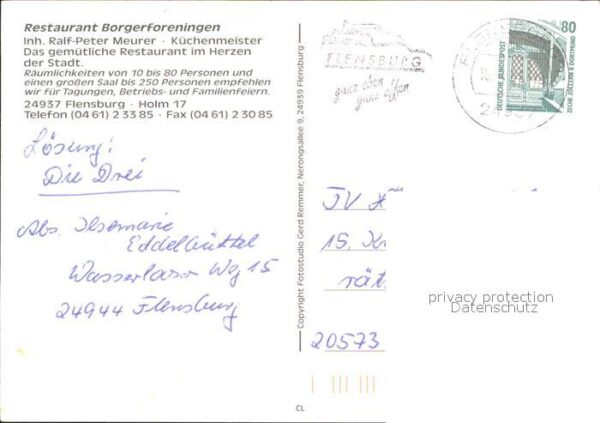 Restaurant Borgerforeningen
Inh. Ralf-Peter Meurer · Küchenmeister
Das gemütliche Restaurant im Herzen
der Stadt.
Räumlichkeiten von 10 bis 80 Personen und
einen großen Saal bis 250 Personen empfehlen
wir für Tagungen, Betriebs- und Familienfeiern.
24937 Flensburg · Holm 17
Telefon (04 61) 2 33 85 · Fax (04 61) 2 30 85
Lösung:
Die Drei
Abs. Ilsemarie
Eddelbüttel
Wasserlaser Weg 15
24944 Flensburg
Copyright Fotostudio Gerd Remmer, Nerongsallee 9, 24939 Flensburg
CL
FLENSBURG
ganz oben
ganz offen
80
DEUTSCHE BUNDESPOST
ZECHE ZOLLERN II DORTMUND
TV
15. Kr
rät
20573
privacy protection
Datenschutz